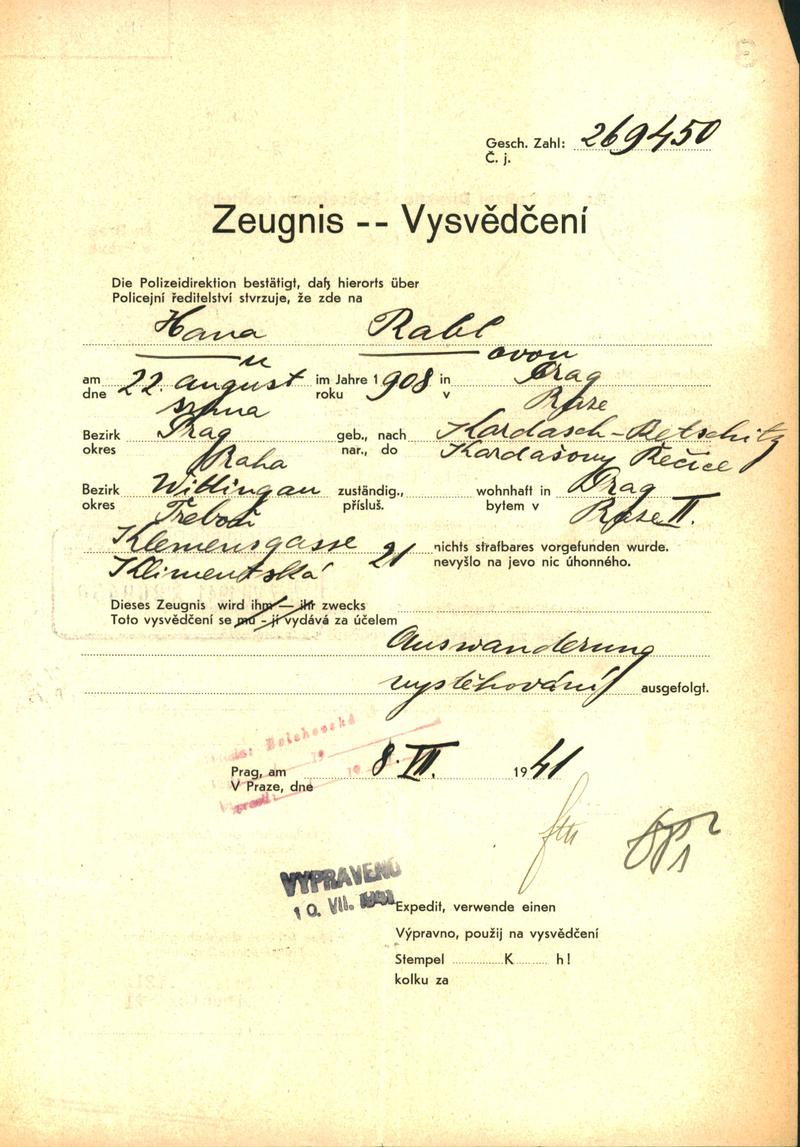 Gesch. Zahl: 269450
Č. j.
Zeugnis -- Vysvědčení
Die Polizeidirektion bestätigt, daß hierorts über
Policejní ředitelství stvrzuje, že zde na
Hana Rabl
ovou
am 22. august im Jahre 1908 in Prag
dne srpna roku v Praze
Bezirk Prag geb., nach Kardasch-Retschitz
okres Praha nar., do Kardašovy Řečice
Bezirk Wittingau zuständig., wohnhaft in Prag
okres Třeboň přísluš. bytem v Praze II.
Klemensgasse 21 nichts strafbares vorgefunden wurde.
Klimentská nevyšlo na jevo nic úhonného.
Dieses Zeugnis wird ihm — ihr zwecks
Toto vysvědčení se mu - jí vydává za účelem
Auswanderung
vystěhování ausgefolgt.
Prag, am 8. VII. 1941
V Praze, dne
VYPRAVENO
10. VII. 1941
Expedit, verwende einen
Výpravno, použij na vysvědčení
Stempel K h!
kolku za